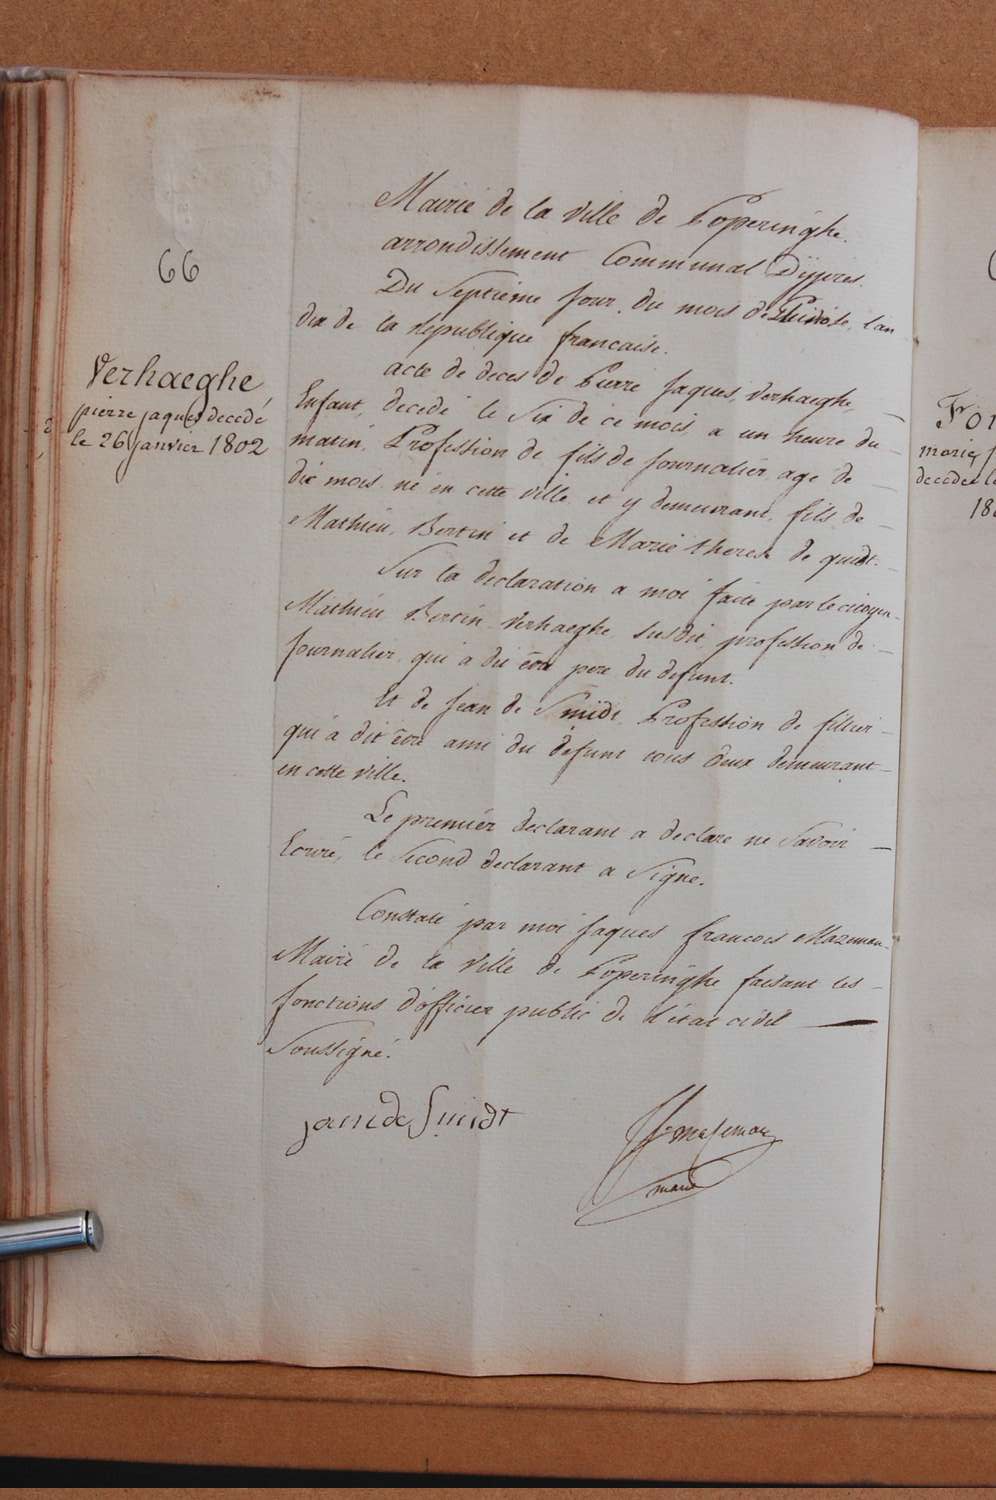 66
Verhaeghe
pierre jaques decedé
le 26 janvier 1802
Mairie de la ville de Poperinghe.
arrondissement Communal D'ypres.
Du Septieme jour du mois de Pluviose, l'an
dix de la republique francaise.
acte de deces de Pierre Jaques, Verhaeghe,
Enfant, decedé le Six de ce mois a un heure du
matin, Profession de fils de journalier agé de
dix mois né en cette ville et y demeurant, fils de
Mathieu, Bertin et de Marie therese de quidt.
Sur la declaration a moi faite par le citoyen
Mathieu Bertin Verhaeghe susdit, profession de
journalier, qui a dit être pere du defunt.
Et de Jean de Smidt, Profession de
qui a dit être ami du defunt tous deux demeurant
en cette ville.
Le premier declarant a declaré ne Savoir
Ecrire, le Second declarant a Signé.
Constaté par moi Jaques francois Mazeman
Maire de la Ville de Poperinghe faisant les
fonctions d'officier public de l'état civil
Soussigné.
jan de Smidt
maseman
maire
For
marie
decedée le
18